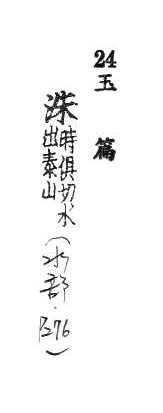 24玉篇
洙時俱切水出泰山(水部·P.276)